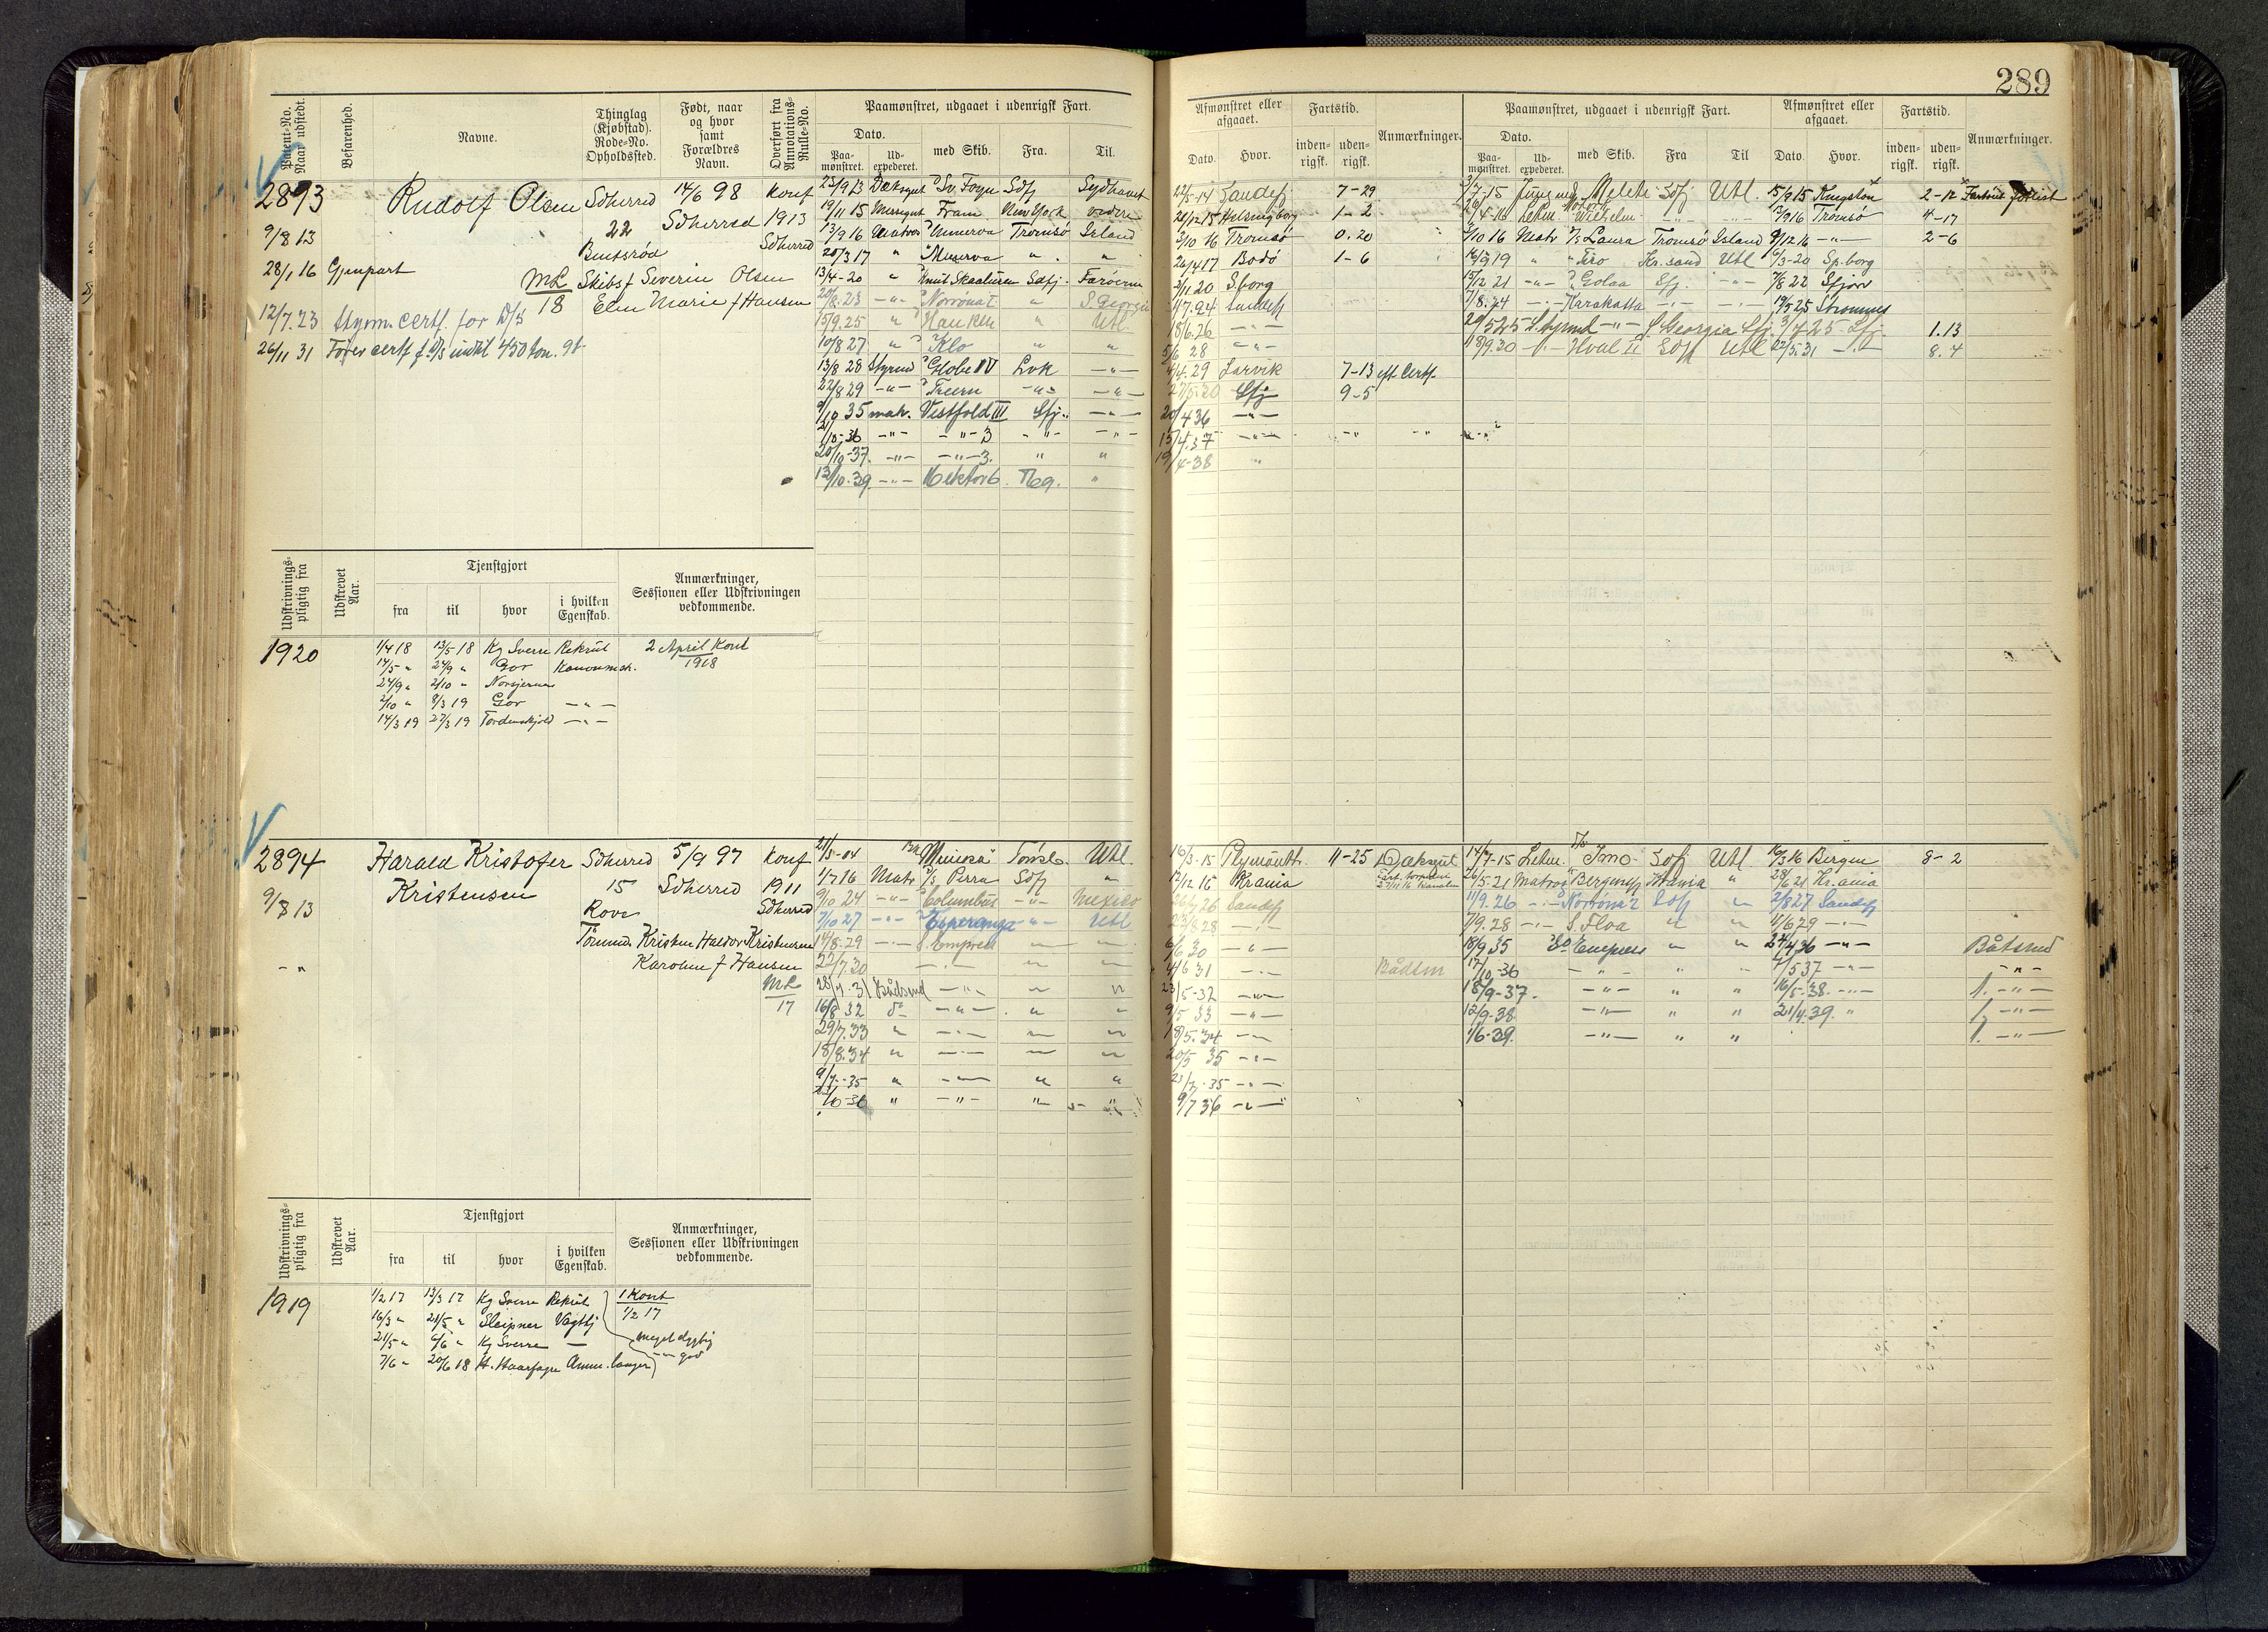 289
Patent-No. Naar udstedt.
Befarenhed.
Navne.
Thinglag (Kjøbstad). Rode-No. Opholdssted.
Født, naar og hvor samt Forældres Navn.
Overført fra Annotations-Rulle-No.
Paamønstret, udgaaet i udenrigsk Fart.
Dato.
Paamønstret. Udexpederet. med Skib. Fra. Til.
Afmønstret eller afgaaet. Fartstid. Anmærkninger. Paamønstret, udgaaet i udenrigsk Fart. Afmønstret eller afgaaet. Fartstid. Anmærkninger.
Dato. Hvor. indenrigsk. udenrigsk. Dato. Paamønstret. Udexpederet. med Skib. Fra Til Dato. Hvor. indenrigsk. udenrigsk.
2893 Rudolf Olsen Sdherred 14/6 98 Konf
9/8 13 22 Sdherred 1913
Bentsrød Sdherred
28/1 16 Gjenpart
ML Skibsf Severin Olsen
18 Elen Marie f Hansen
12/7.23 Styrm. certf. for D/S
26/11 31 Fører certf f. D/S indtil 450 ton. 9t
25/9 13 Dæksgut Sv. Foyn Sdfj Sydhavet
19/11 15 Messegut Fram New York videre
13/9 16 Matros Minerva Tromsø Island
20/3 17 " Minerva " "
13/4-20 " Knut Skaaluren Safj. Færøerne
20/8.23 -"- Norrøna I " S. Georgia
15/9.25 " Hauken " Utl.
10/8 27 " Klo " "
13/8 28 Styrmd Globe IV Lvk -"-
22/8 29 -"- Treern -"- -"-
9/10 35 matr. Vestfold III Sfj. -"-
21/10-36 -"- -"- 3 -"- -"-
20/10-37. -"- -"- 3. " "
13/10.39. -"- Hektor 6 Tbg. "
22/5-14 Sandefj 7-29
28/12 15 Helsingborg 1-2
3/10 16 Tromsø 0.20
26/4 17 Bodø 1-6
2/11 20 S.borg
4/7.24 Sandefj
18/6.26 -"-
5/6 28 -"-
4/4.29 Larvik 7-13 eft. Certf.
27/5.30 Sfj 9-5
20/4 36 -"-
15/4.37 -"-
19/4-38 "
3/7-15 Jungmd Meleti Sdfj Utl. 15/9 15 Kingston 2-12 Fartøiet forlist
26/4-16 Letm Wilhelm -"- -"- 13/9 16 Tromsø 4-17
3/10 16 Matr Laura Tromsø Island 9/12 16 -"- 2-6
16/9 19 " Tiro Kr.sand Utl 6/3-20 Sp.borg
15/12 21 -"- Golaa Sfj. -"- 7/8 22 Sfjord
7/8.24 -"- Karakatta -"- -"- 19/5 25 Stromnes
20/5 25 Styrmd -"- S Georgia Sfj. 3/7-25 Sfj 1.13
18/9.30 -"- Hval II Sdfj Utl 22/5.31 -"- 8.4
Udskrivningspligtig fra
Udskrevet Aar.
Tjenstgjort
fra til hvor i hvilken Egenskab.
Anmærkninger, Sessionen eller Udskrivningen vedkommende.
1920
1/4 18 13/5 18 Kg Sverre Rekrut 2 April Kont
14/5 " 24/9 " Gor Kanonmsk. 1918
24/9 " 2/10 " Norsjernen
2/10 " 8/3 19 Gor -"-
14/3 19 27/3 19 Tordenskjold -"-
2894 Harald Kristofer Sdherred 5/9 97 Konf
Kristensen 15 Sdherred 1911
9/8 13 Rove Sdherred
Tømmrd. Kristen Haldor Kristensen
-"- Karoline f Hansen
ML
17
21/5-04 Mimosa Tønsb. Utl.
1/7 16 Matr Perra Sdfj "
9/10 24 -"- Columbus -"- Mexico
7/10 27 -"- Esperanza -"- Utl
14/8.29 -"- S. Empress
22/7.30 -"-
28/7.31 Bådsmd -"-
16/8 32 do -"- " "
29/7.33 " -"-
18/8.34 " -"-
9/7-35 " -"- " "
2/10-36 " -"- " "
16/3-15 Plymouth 11-25 Dæksgut
12/12 16 Krania
26/7 26 Sandefj
23/8.28 -"-
6/6 30 -"-
4/6 31 -"- Bådsm
23/5-32 -"-
9/5 33 -"-
18/5.34 -"-
20/5 35 -"-
23/7.35 -"-
9/7 36 -"-
14/7-15 Letm. D/S Imo Sdfj Utl 16/3 16 Bergen 8-2
26/5.21 Matros Bergensfj Krania " 28/6 21 Kr.ania
11/9.26 -"- Norrøna 2 Sdfj " 2/8 27 Sandefj
7/9.28 -"- S. Flora " " 11/6 29 -"-
18/9 35 So Empress " " 24/4 36 -"- Båtsmd
17/10-36 -"- " " 7/5 37 -"- -"-
18/9-37. -"- " " 16/5.38. -"- 1. -"-
12/9-38. -"- " " 21/4.39. " 1. -"-
1/6-39. -"- " " 1. -"-
Udskrivningspligtig fra
Udskrevet Aar.
Tjenstgjort
fra til hvor i hvilken Egenskab.
Anmærkninger, Sessionen eller Udskrivningen vedkommende.
1919
1/2 17 13/3 17 Kg Sverre Rekrut 1 Kont
16/3 " 21/5 " Sleipner Vagthj 1/2 17
21/5 " 6/6 " Kg Sverre — meget dygtig
7/6 " 20/6 18 H. Haarfagre Amm. langer -"- god